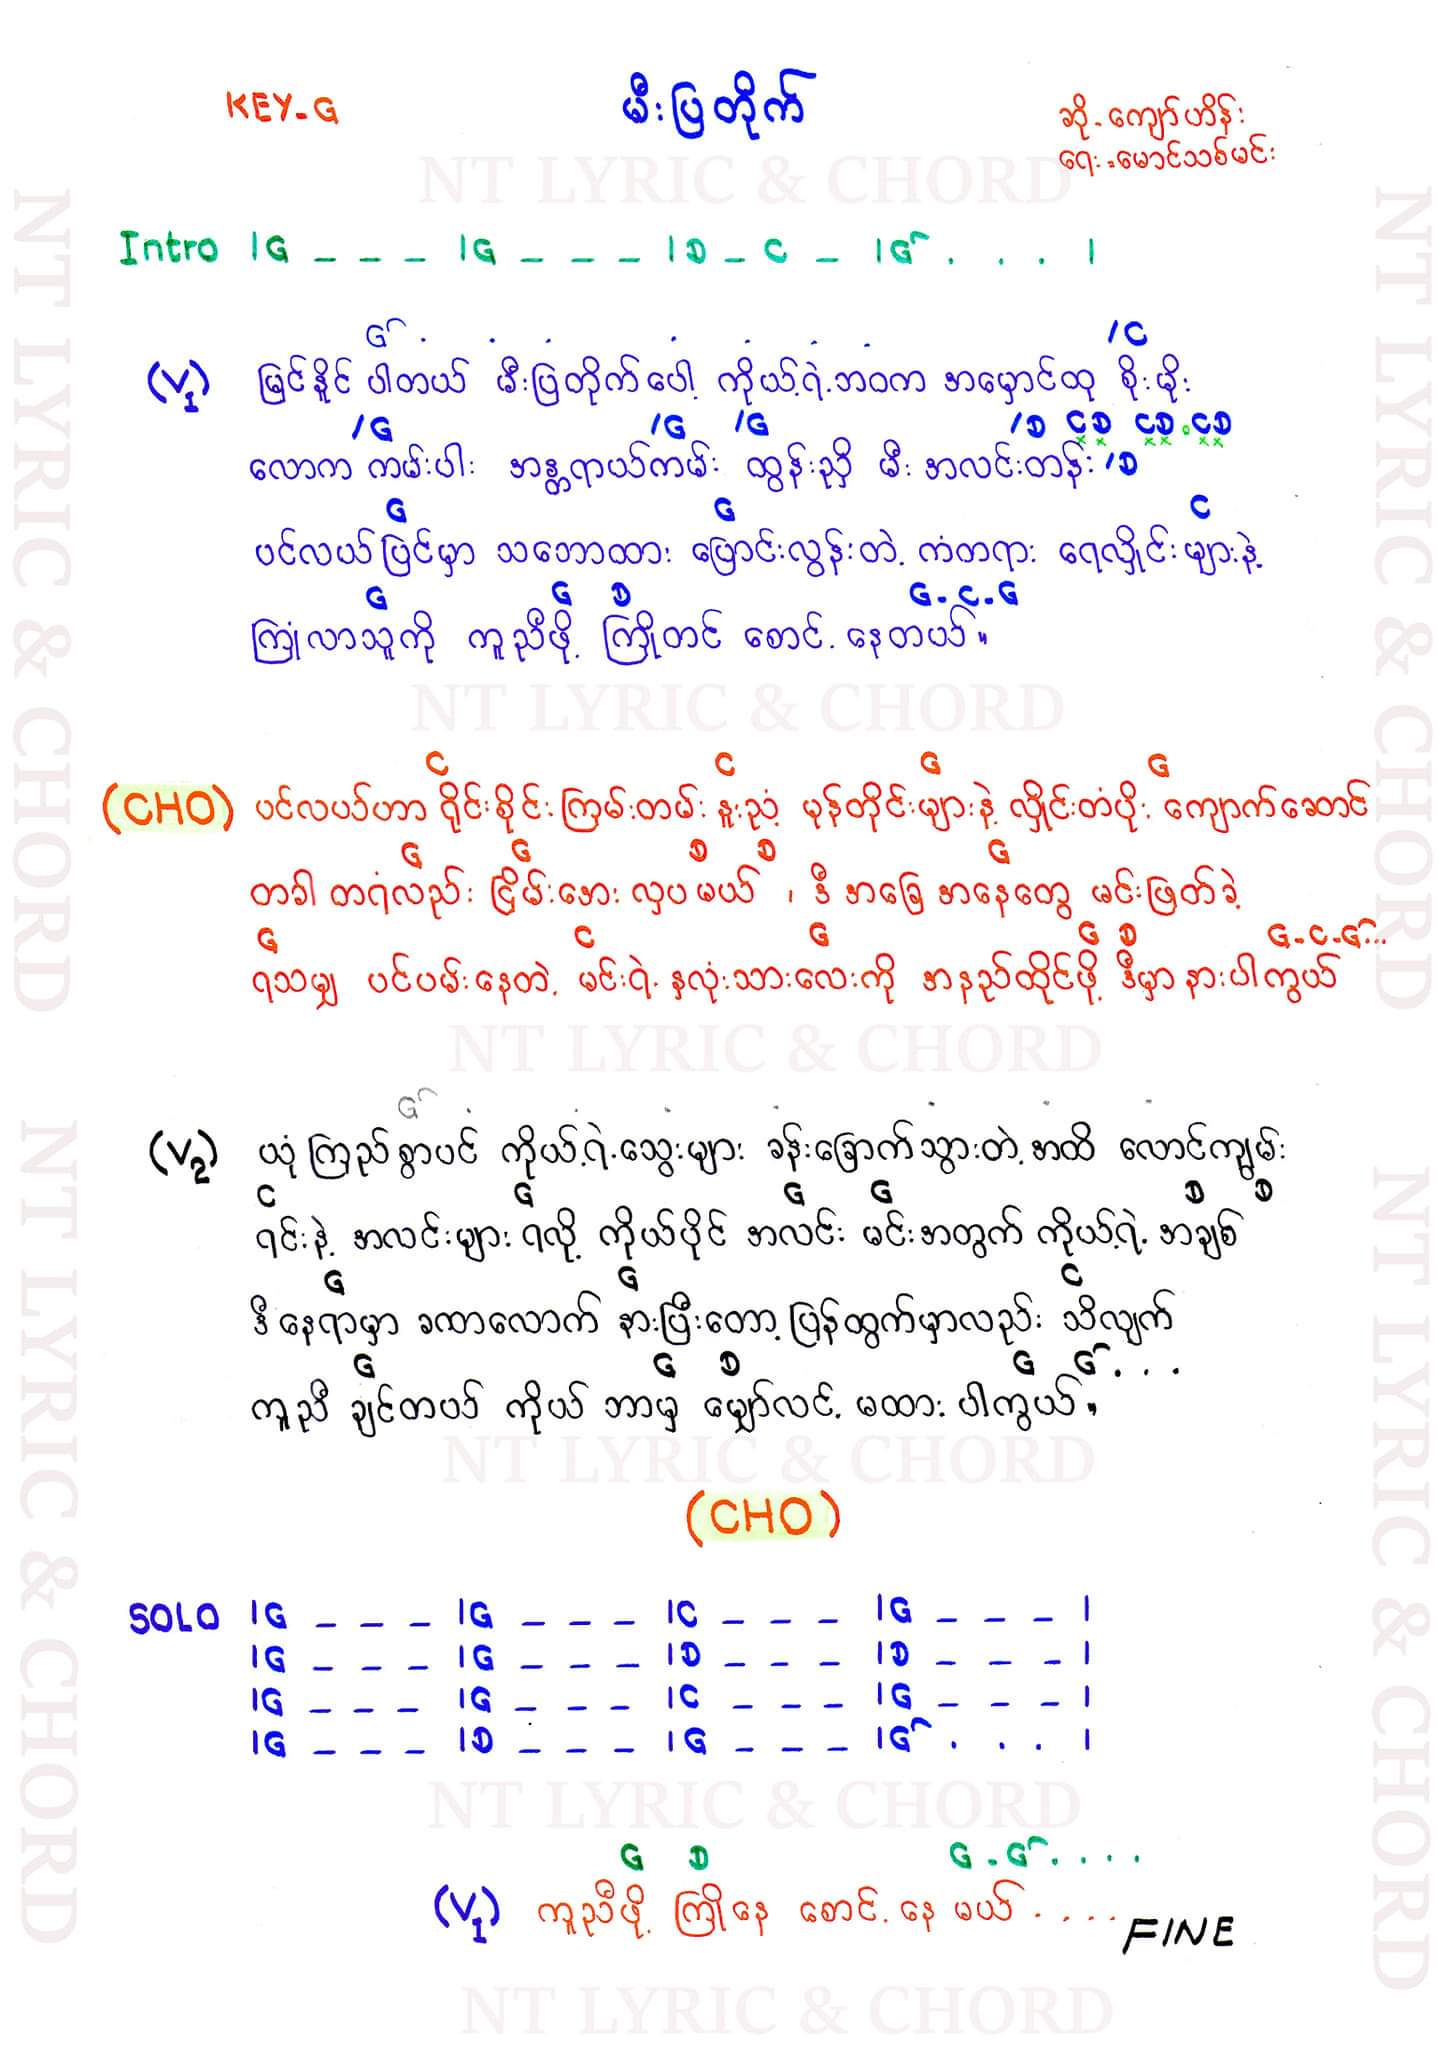 KEY-G
မီးပြတိုက်
ဆို-ကျော်ဟိန်း
ရေး-မောင်သစ်မင်း
NT LYRIC & CHORD
Intro |G _ _ _ |G _ _ _ |D _ C _ |G . . . |
G . . . . . . . /C
(V1) မြင်နိုင် ပါတယ် မီးပြတိုက်ပေါ့ ကိုယ့်ရဲ့ဘဝက အမှောင်ထု စိုးမိုး
/G /G /G /D CD CD . CD
လောက ကမ်းပါး အန္တရာယ်ကမ်း ထွန်းညှိ မီး အလင်းတန်း /D
G G C
ပင်လယ်ပြင်မှာ သဘောထား ပြောင်းလွန်းတဲ့ ကံတရား ရေလှိုင်းများနဲ့
G G D G-C-G
ကြုံလာသူကို ကူညီဖို့ ကြိုတင် စောင့်နေတယ်။
NT LYRIC & CHORD
C C G G
(CHO) ပင်လယ်ဟာ ရိုင်းစိုင်းကြမ်းတမ်း နူးညံ့ မုန်တိုင်းများနဲ့ လှိုင်းတံပိုး ကျောက်ဆောင်
G G D D G
တခါ တရံလည်း ငြိမ်းအေး လှပ မယ် ၊ ဒီ အခြေ အနေတွေ မင်းဖြတ်ခဲ့
G C G G D G-C-G...
ရသမျှ ပင်ပမ်းနေတဲ့ မင်းရဲ့ နှလုံးသားလေးကို အနည်ထိုင်ဖို့ ဒီမှာ နားပါကွယ်
NT LYRIC & CHORD
G . . . . . . .
(V2) ယုံကြည်စွာပင် ကိုယ့်ရဲ့သွေးများ ခန်းခြောက်သွားတဲ့အထိ လောင်ကျွမ်း
C G G G D D
ရင်းနဲ့ အလင်းများ ရလို့ ကိုယ်ပိုင် အလင်း မင်းအတွက် ကိုယ့်ရဲ့ အချစ်
G G C
ဒီနေရာမှာ ခဏလောက် နားပြီးတော့ ပြန်ထွက်မှာလည်း သိလျက်
G G D G G . . .
ကူညီ ချင်တယ် ကိုယ် ဘာမှ မျှော်လင့် မထား ပါကွယ်။
NT LYRIC & CHORD
(CHO)
SOLO |G _ _ _ |G _ _ _ |C _ _ _ |G _ _ _ |
|G _ _ _ |G _ _ _ |D _ _ _ |D _ _ _ |
|G _ _ _ |G _ _ _ |C _ _ _ |G _ _ _ |
|G _ _ _ |D _ _ _ |G _ _ _ |G . . . |
NT LYRIC & CHORD
G D G - G . . . .
(V1) ကူညီဖို့ ကြိုနေ စောင့်နေ မယ် ....
FINE
NT LYRIC & CHORD
NT LYRIC & CHORD
NT LYRIC & CHORD
NT LYRIC & CHORD
NT LYRIC & CHORD